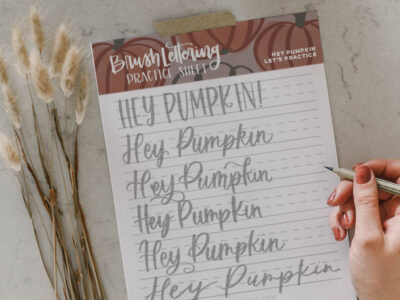 Brush Lettering
PRACTICE SHEET
HEY PUMPKIN
LET'S PRACTICE
HEY PUMPKIN!
Hey Pumpkin
Hey Pumpkin
Hey Pumpkin
Hey Pumpkin
Hey Pumpkin